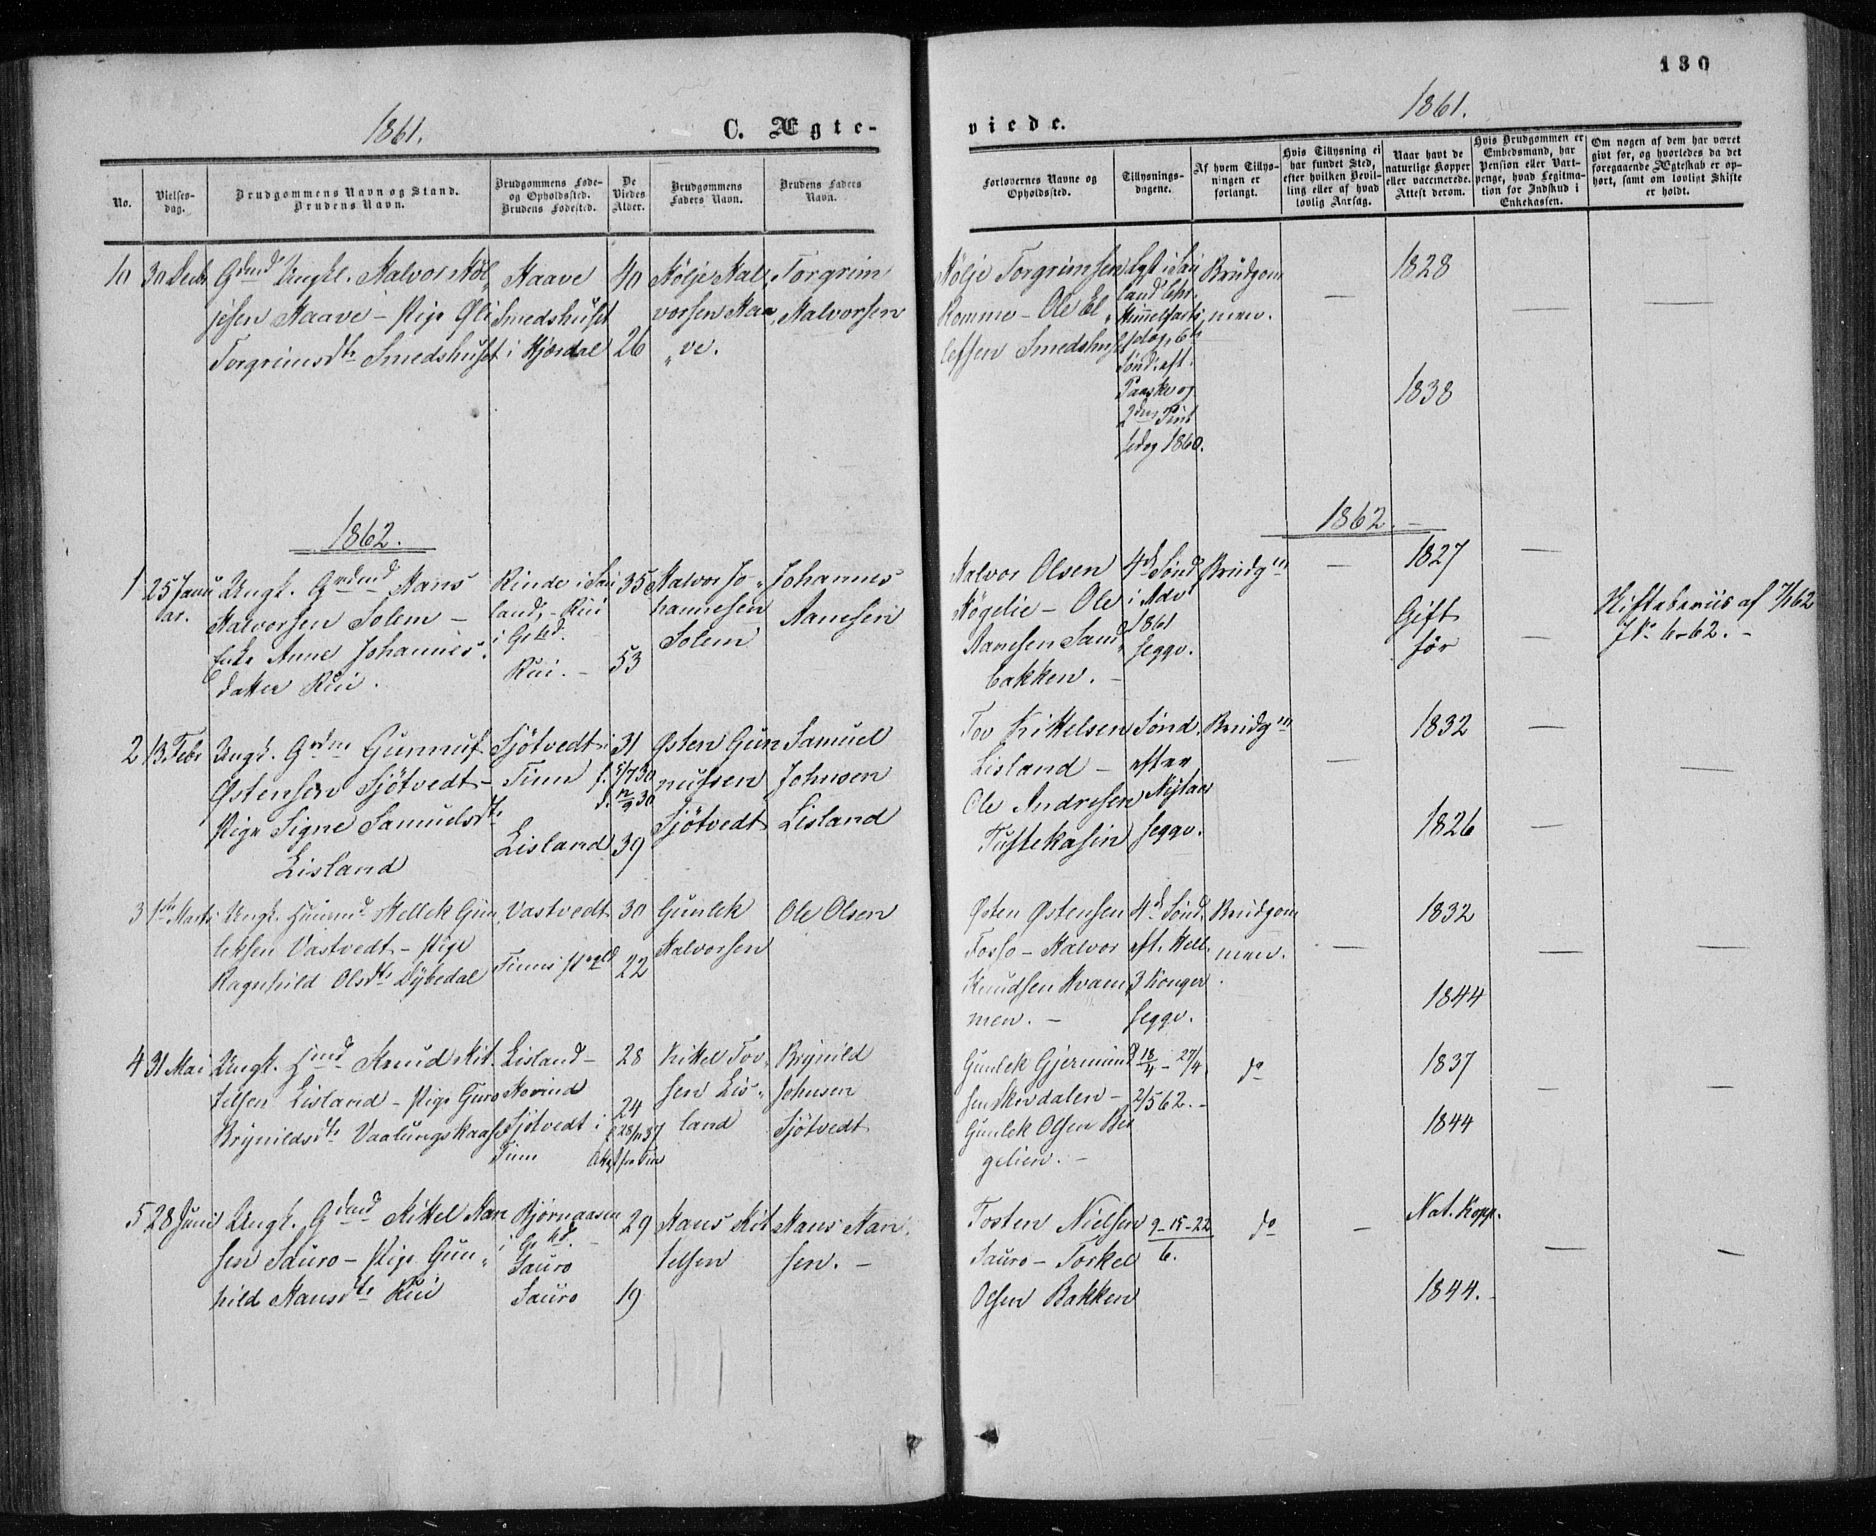 130
1861.
C. Ægte-
viede.
1861.
No.
Vielses-
dag.
Brudgommens Navn og Stand.
Brudens Navn.
Brudgommens Føde-
og Opholdssted.
Brudens Fødested.
De
Viedes
Alder.
Brudgommens
Faders Navn.
Brudens Faders
Navn.
Forlovernes Navne og
Opholdssted.
Tillysnings-
dagene.
Af hvem Tillys-
ningen er
forlangt.
Hvis Tillysning ei
har fundet Sted,
efter hvilken Bevil-
ling eller af hvad
lovlig Aarsag.
Naar havt de
naturlige Kopper
eller vaccinerede.
Attest derom.
Hvis Brudgommen er
Embedsmand, har
Pension eller Vart-
penge, hvad Legitima-
tion for Indskud i
Enkekassen.
Om nogen af dem har været
givt før, og hvorledes da det
foregaaende Ægteskab er op-
hørt, samt om lovligt Skifte
er holdt.
10 30 Decbr
Gdmd Ungkl. Halvor Høl-
jesen Haave - Pige Oli
Torgrimsdtr Smedshuset
Haave
Smedshuset
i Hjerdal
40
26
Hølje Hal-
vorsen Haa-
ve.
Torgrim
Halvorsen
Hølje Torgrimsen
Romme - Ole El-
lefsen Smedshuset
Lyst i Sau
land Chr.
Himmelfarts
dag, 6te
Sønd. eft.
Paaske og
2den Pint
sedag 1860.
Brudgom
men.
1828
1838
1862.
1862.
1 25 Janu
ar.
Ungk. Grdmd Hans
Halvorsen Solem -
Enke Anne Johannes-
datter Rui.
Rinde i Sau
land, - Rui
i Grbd.
Rui. -
35
53
Halvor Jo-
hannesen
Solem
Johannes
Aanesen
Halvor Olsen
Høgelie - Ole
Aanesen Sand-
bakken. -
4de Sønd
i Adv
1861
seggv.
Brudgm
1827
Gift
før
Skiftebeviis af 7/1 62
JNo 6-62. -
2 13 Febr
Ungk. Grdm Gunnuf
Østensen Sjøtvedt -
Pige Signe Samuelsdtr
Lisland
Sjøtvedt i
Tinn
Lisland
31
f. 5/7 30
d. 12/9 30
39
Østen Gun
nufsen
Sjøtvedt
Samuel
Johnsen
Lisland
Tov Kittelsen
Lisland -
Ole Andresen
Tuftekasin
Sønd
efter
Nytaar
seggv.
Brudgm
1832
1826
3 1ste Marts
Ungk. Huusmd Hellek Gun
leksen Vastvedt - Pige
Ragnhild Olsdtr Dybedal
Vastvedt
Tinns Prgld
30
22
Gunlek
Halvorsen
Ole Olsen
Østen Østensen
Fosso - Halvor
Knudsen Kvam-
men. -
4de Sønd.
eft. Hell.
3 Konger
seggv.
Brudgom
men.
1832
1844
4 31 Mai
Ungk. Hmd Knud Kit
telsen Lisland - Pige Guro
Brynildsdtr Vaalungskaas
Lisland -
Hovind
Sjøtvedt i
Tinn
28
24
f. 28/11 37
Kittel Tov-
sen Lis-
land
Brynild
Johnsen
Sjøtvedt
Gunlek Gjermund
sen Skrdalen -
Gunlek Olsen Ber
gelien. -
18/4 - 27/4
2/5 62. -
do
1837
1844
5 28 Juni
Ungk. Gdmd Kittel Han
sen Sauro - Pige Gun-
hild Hansdtr Rui
Bjørnaasen
i Grbd. -
Sauro
Sauro
29
19
Hans Kit
telsen
Hans Han-
sen. -
Tosten Nielsen
Sauro - Torkel
Olsen Bakken
9-15-22
6.
do
Nat. Kopp.
1844. -